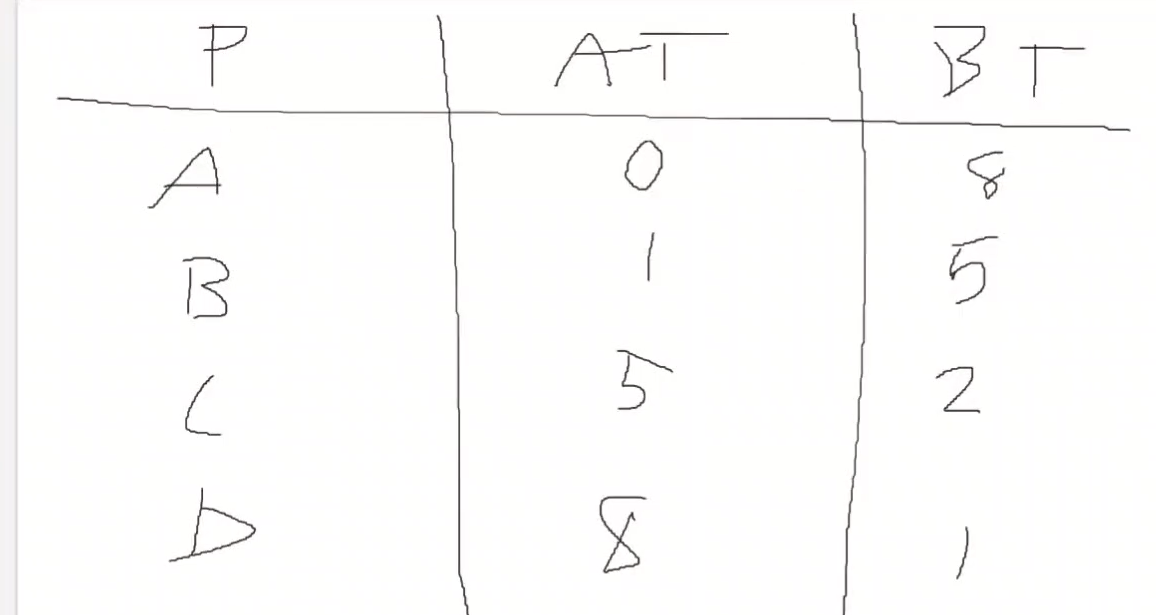 P AT BT
A 0 8
B 1 5
C 5 2
D 8 1